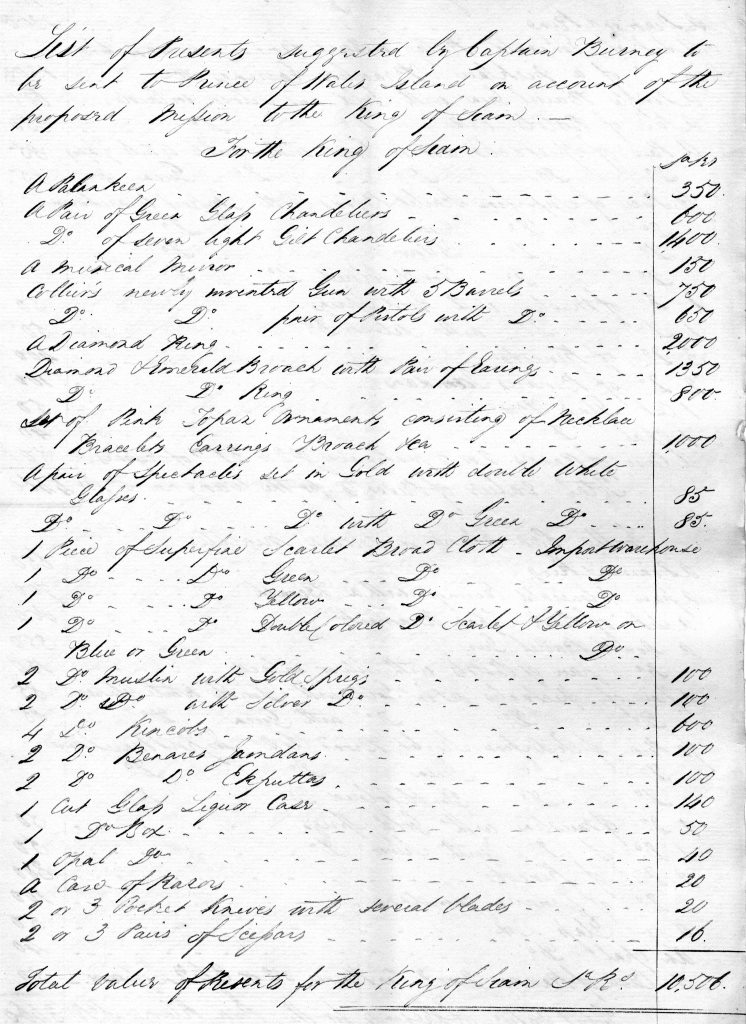 List of Presents suggested by Captain Burney to
be sent to Prince of Wales Island on account of the
proposed Mission to the King of Siam. —
For the King of Siam.
Sa Rs
A Palankeen 350.
A Pair of Green Glass Chandeliers 600
Do. of seven light Gilt Chandeliers 1400
A musical Mirror 150
Collier's newly invented Gun with 5 Barrels 750
Do. Do. pair of Pistols with Do. 650
A Diamond Ring 2,000
Diamond & Emerald Broach with Pair of Earings 1350
Do. Do. Ring 800
Set of Pink Topaz Ornaments consisting of Necklace
Bracelets Earrings Broach &ca 1,000
A pair of Spectacles set in Gold with double White
Glasses 85
Do. Do. Do. with Do. Green Do. 85.
1 Piece of Superfine Scarlet Broad Cloth - Import warehouse
1 Do. Do. Green Do. Do.
1 Do. Do. Yellow Do. Do.
1 Do. Do. Double Colored Do. Scarlet & Yellow or
Blue or Green Do.
2 Do. Muslin with Gold Sprigs 100
2 Do. Do. with Silver Do. 100
4 Do. Kincobs 600
2 Do. Benares Jamdans 100
2 Do. Do. Ekputtas 100
1 Cut Glass Liquor Case 140
1 Do. Box 50
1 Opal Do. 40
A Case of Razors 20
2 or 3 Pocket Knives with several blades 20
2 or 3 Pairs of Scissars 16.
Total value of Presents for the King of Siam Sa Rs. 10,506.